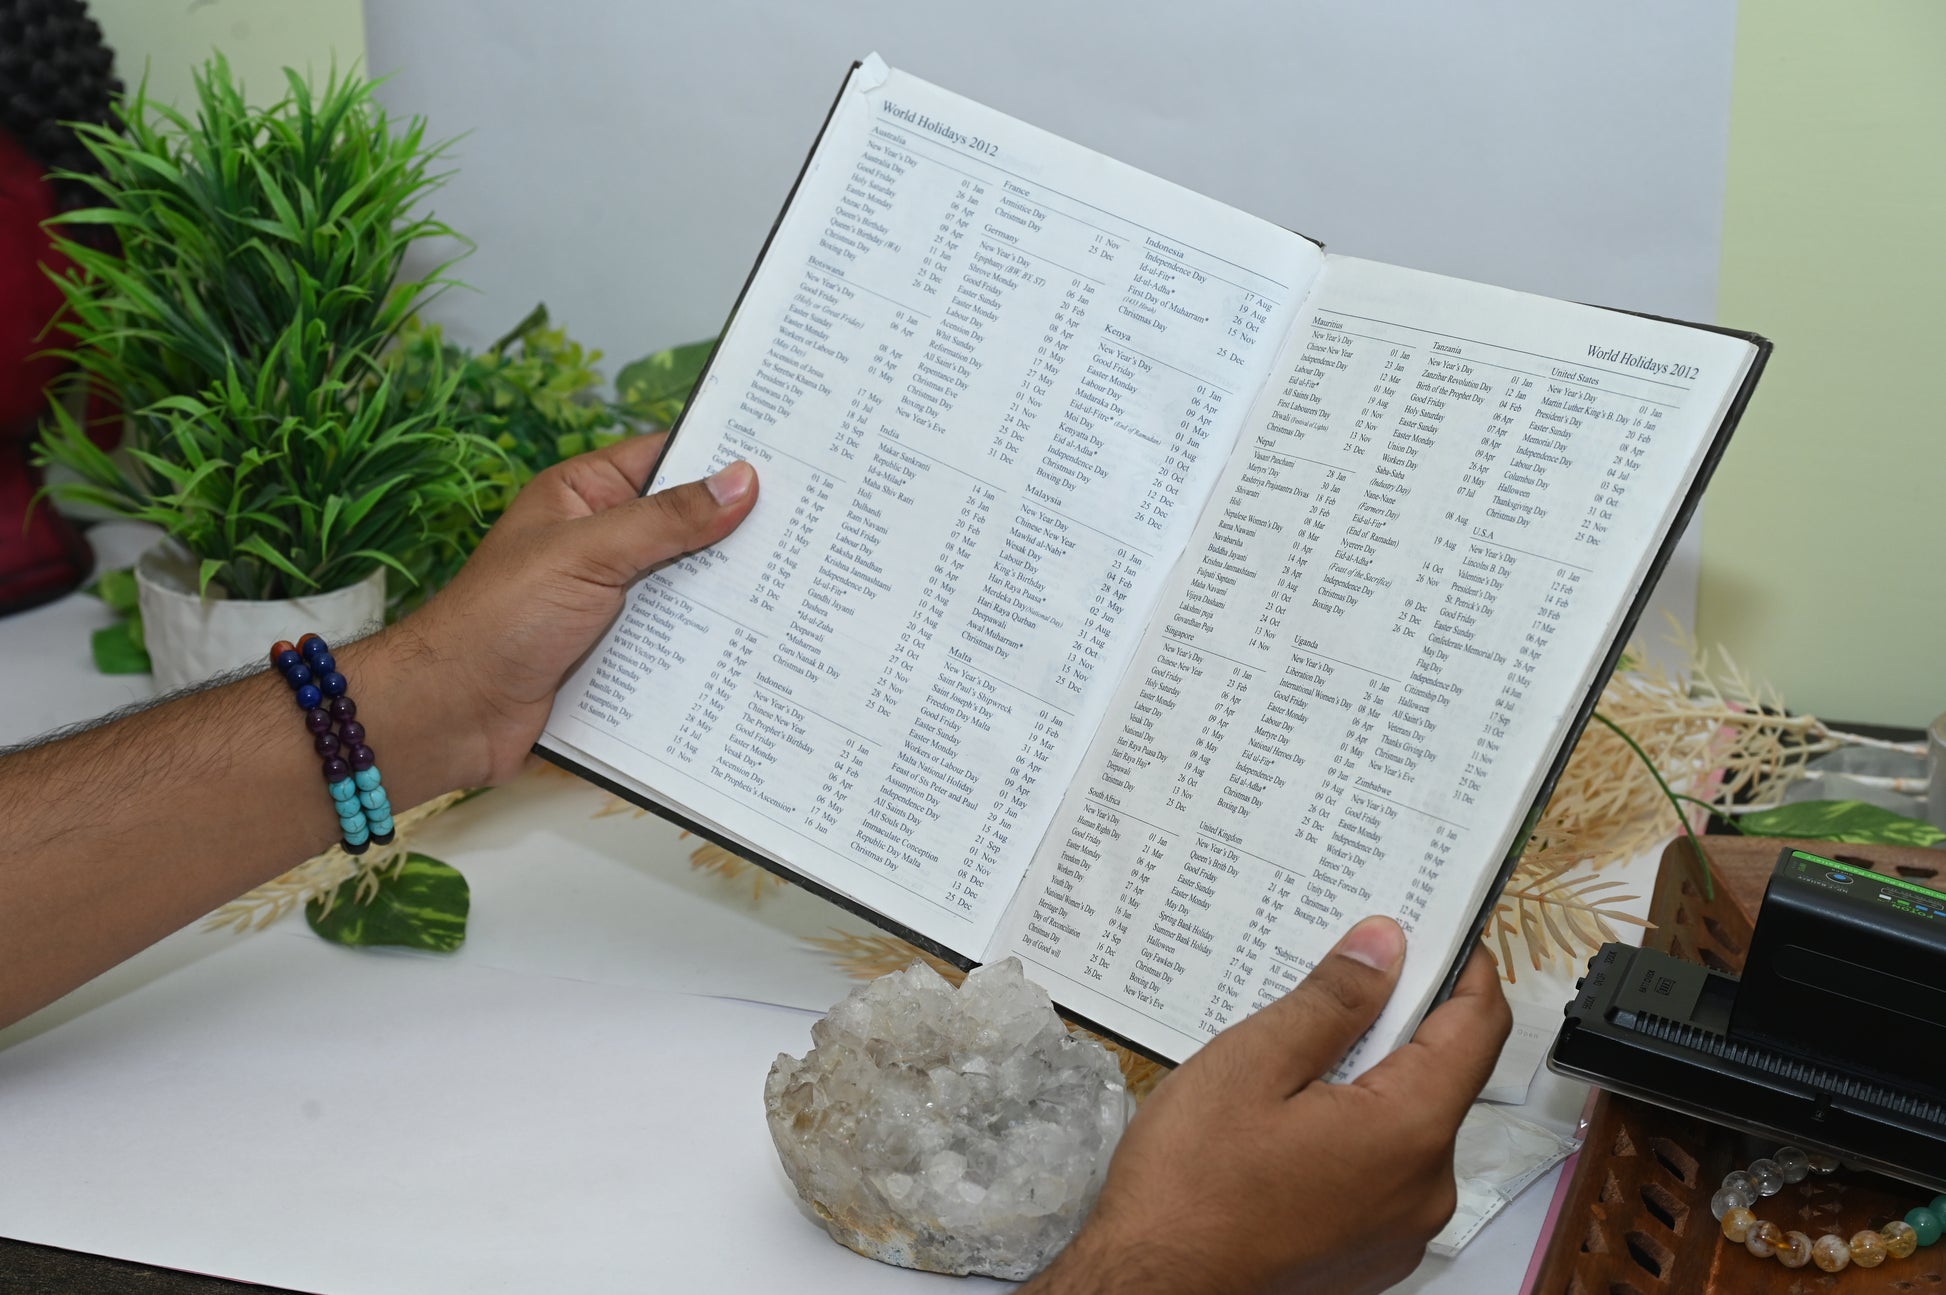 World Holidays 2012
Australia
New Year's Day 01 Jan
Australia Day 26 Jan
Good Friday 06 Apr
Holy Saturday 07 Apr
Easter Monday 09 Apr
Anzac Day 25 Apr
Queen's Birthday 11 Jun
Queen's Birthday (WA) 01 Oct
Christmas Day 25 Dec
Boxing Day 26 Dec
Botswana
New Year's Day 01 Jan
Good Friday 06 Apr
(Holy or Great Friday)
Easter Sunday 08 Apr
Easter Monday 09 Apr
Workers or Labour Day 01 May
(May Day)
Ascension of Jesus 17 May
Sir Seretse Khama Day 01 Jul
President's Day 18 Jul
Botswana Day 30 Sep
Christmas Day 25 Dec
Boxing Day 26 Dec
Canada
New Year's Day 01 Jan
Epiphany 06 Jan
06 Apr
08 Apr
09 Apr
21 May
01 Jul
06 Aug
03 Sep
08 Oct
Day 25 Dec
Day 26 Dec
France
New Year's Day 01 Jan
Good Friday(Regional) 06 Apr
Easter Sunday 08 Apr
Easter Monday 09 Apr
Labour Day/May Day 01 May
WWII Victory Day 08 May
Ascension Day 17 May
Whit Sunday 27 May
Whit Monday 28 May
Bastille Day 14 Jul
Assumption Day 15 Aug
All Saints Day Nov
France
Armistice Day 11 Nov
Christmas Day 25 Dec
Germany
New Year's Day 01 Jan
Epiphany (BW, BY, ST) 06 Jan
Shrove Monday 20 Feb
Good Friday 06 Apr
Easter Sunday 08 Apr
Easter Monday 09 Apr
Labour Day 01 May
Acension Day 17 May
Whit Sunday 27 May
Reformation Day 31 Oct
All Saint's Day 01 Nov
Repentance Day 21 Nov
Christmas Eve 24 Dec
Christmas Eve 25 Dec
Boxing Day 26 Dec
New Year's Eve 31 Dec
India
Makar Sankranti 14 Jan
Republic Day 26 Jan
Id-a-Milad* 05 Feb
Maha Shiv Ratri 20 Feb
Holi 07 Mar
Dulhandi 08 Mar
Ram Navami 01 Apr
Good Friday 06 Apr
Labour Day 01 May
Raksha Bandhan 02 Aug
Krishna Janmashtami 10 Aug
Independence Day 15 Aug
Id-ul-Fitr* 20 Aug
Gandhi Jayanti 02 Oct
Dashera 24 Oct
*Id-ul-Zuha 27 Oct
Deepawali 13 Nov
*Muharram 25 Nov
Guru Nanak B. Day 28 Nov
Christmas Day 25 Dec
Indonesia
New Year's Day 01 Jan
Chinese New Year 23 Jan
The Prophet's Birthday 04 Feb
Good Friday 06 Apr
Easter Monday 09 Apr
Vesak Day* 06 May
Ascension Day 17 May
The Prophets's Ascension* 16 Jun
Indonesia
Independence Day 17 Aug
Id-ul-Fitr* 19 Aug
Id-ul-Adha* 26 Oct
First Day of Muharram* 15 Nov
(1433 Hijrah)
Christmas Day 25 Dec
Kenya
New Year's Day 01 Jan
Good Friday 06 Apr
Easter Monday 09 Apr
Labour Day 01 May
Madaraka Day 01 Jun
Eid-ul-Fitre* (End of Ramadan) 19 Aug
Moi Day 10 Oct
Kenyatta Day 20 Oct
Eid al-Adha* 26 Oct
Independence Day 12 Dec
Christmas Day 25 Dec
Boxing Day 26 Dec
Malaysia
New Year Day 01 Jan
Chinese New Year 23 Jan
Mawlid al-Nabi* 04 Feb
Wesak Day 28 Apr
Labour Day 01 May
King's Birthday 02 Jun
Hari Raya Puasa* 19 Aug
Merdeka Day(National Day) 31 Aug
Hari Raya Qurban 26 Oct
Deepawali 13 Nov
Awal Muharram* 15 Nov
Christmas Day 25 Dec
Malta
New Year's Day 01 Jan
Saint Paul's Shipwreck 10 Feb
Saint Joseph's Day 19 Mar
Freedom Day Malta 31 Mar
Good Friday 06 Apr
Easter Sunday 08 Apr
Easter Monday 09 Apr
Workers or Labour Day 01 May
Malta National Holiday 07 Jun
Feast of Sts Peter and Paul 29 Jun
Assumption Day 15 Aug
Independence Day 21 Sep
All Saints Day 01 Nov
All Souls Day 02 Nov
Immaculate Conception 08 Dec
Republic Day Malta 13 Dec
Christmas Day 25 Dec
World Holidays 2012
Mauritius
New Year's Day 01 Jan
Chinese New Year 23 Jan
Independence Day 12 Mar
Labour Day 01 May
Eid ul-Fitr* 19 Aug
All Saints Day 01 Nov
First Labourers'Day 02 Nov
Diwali (Festival of Lights) 13 Nov
Christmas Day 25 Dec
Nepal
Vasant Panchami 28 Jan
Martyrs' Day 30 Jan
Rashtriya Prajatantra Divas 18 Feb
Shivaratri 20 Feb
Holi 08 Mar
Nepalese Women's Day 08 Mar
Rama Nawami 01 Apr
Navabarsha 14 Apr
Buddha Jayanti 28 Apr
Krishna Janmashtami 10 Aug
Fulpati Saptami
Maha Navami 23 Oct
Vijaya Dashami 24 Oct
Lakshmi puja 13 Nov
Govardhan Puja 14 Nov
Singapore
New Year's Day 01 Jan
Chinese New Year 23 Feb
Good Friday 06 Apr
Holy Saturday 07 Apr
Easter Monday 09 Apr
Labour Day 01 May
Vesak Day 06 May
National Day 09 Aug
Hari Raya Puasa Day 19 Aug
Hari Raya Haji* 26 Oct
Deepawali 13 Nov
Christmas Day 25 Dec
South Africa
New Year's Day 01 Jan
Human Rights Day 21 Mar
Good Friday 06 Apr
Easter Monday 09 Apr
Freedom Day 27 Apr
Workers Day 01 May
Youth Day 16 Jun
National Women's Day 09 Aug
Heritage Day 24 Sep
Day of Reconciliation 16 Dec
Christmas Day 25 Dec
Day of Good will 26 Dec
Tanzania
New Year's Day 01 Jan
Zanzibar Revolution Day 12 Jan
Birth of the Prophet Day 04 Feb
Good Friday 06 Apr
Holy Saturday 07 Apr
Easter Sunday 08 Apr
Easter Monday 09 Apr
Union Day 26 Apr
Workers Day 01 May
Saba-Saba 07 Jul
(Industry Day)
Nane-Nane 08 Aug
(Farmers Day)
Eid-ul-Fitr* 19 Aug
(End of Ramadan)
Nyerere Day 14 Oct
Eid-al-Adha* 26 Nov
(Feast of the Sacrifice)
Independence Day 09 Dec
Christmas Day 25 Dec
Boxing Day 26 Dec
Uganda
New Year's Day 01 Jan
Liberation Day 26 Jan
International Women's Day 08 Mar
Good Friday 06 Apr
Easter Monday 09 Apr
Labour Day 01 May
Martyrs Day 03 Jun
National Heroes Day 09 Jun
Eid ul-Fitr* 19 Aug
Independence Day 09 Oct
Eid al-Adha* 26 Oct
Christmas Day 25 Dec
Boxing Day 26 Dec
United Kingdom
New Year's Day 01 Jan
Queen's Birth Day 21 Apr
Good Friday 06 Apr
Easter Sunday 08 Apr
Easter Monday 09 Apr
May Day 01 May
Spring Bank Holiday 04 Jun
Summer Bank Holiday 27 Aug
Halloween 31 Oct
Guy Fawkes Day 05 Nov
Christmas Day 25 Dec
Boxing Day 26 Dec
New Year's Eve 31 Dec
United States
New Year's Day 01 Jan
Martin Luther King's B. Day 16 Jan
President's Day 20 Feb
Easter Sunday 08 Apr
Memorial Day 28 May
Independence Day 04 Jul
Labour Day 03 Sep
Columbus Day 08 Oct
Halloween 31 Oct
Thanksgiving Day 22 Nov
Christmas Day 25 Dec
U.S.A
New Year's Day 01 Jan
Lincolns B. Day 12 Feb
Valentine's Day 14 Feb
President's Day 20 Feb
St. Petrick's Day 17 Mar
Good Friday 06 Apr
Easter Sunday 08 Apr
Confederate Memorial Day 26 Apr
May Day 01 May
Flag Day 14 Jun
Independence Day 04 Jul
Citizenship Day 17 Sep
Halloween 31 Oct
All Saint's Day 01 Nov
Veterans Day 11 Nov
Thanks Giving Day 22 Nov
Christmas Day 25 Dec
New Year's Eve 31 Dec
Zimbabwe
New Year's Day 01 Jan
Good Friday 06 Apr
Easter Monday 09 Apr
Independence Day 18 Apr
Worker's Day 01 May
Heroes' Day 08 Aug
Defence Forces Day 12 Aug
Unity Day 22 Dec
Christmas Day
Boxing Day
*Subject to
All dates